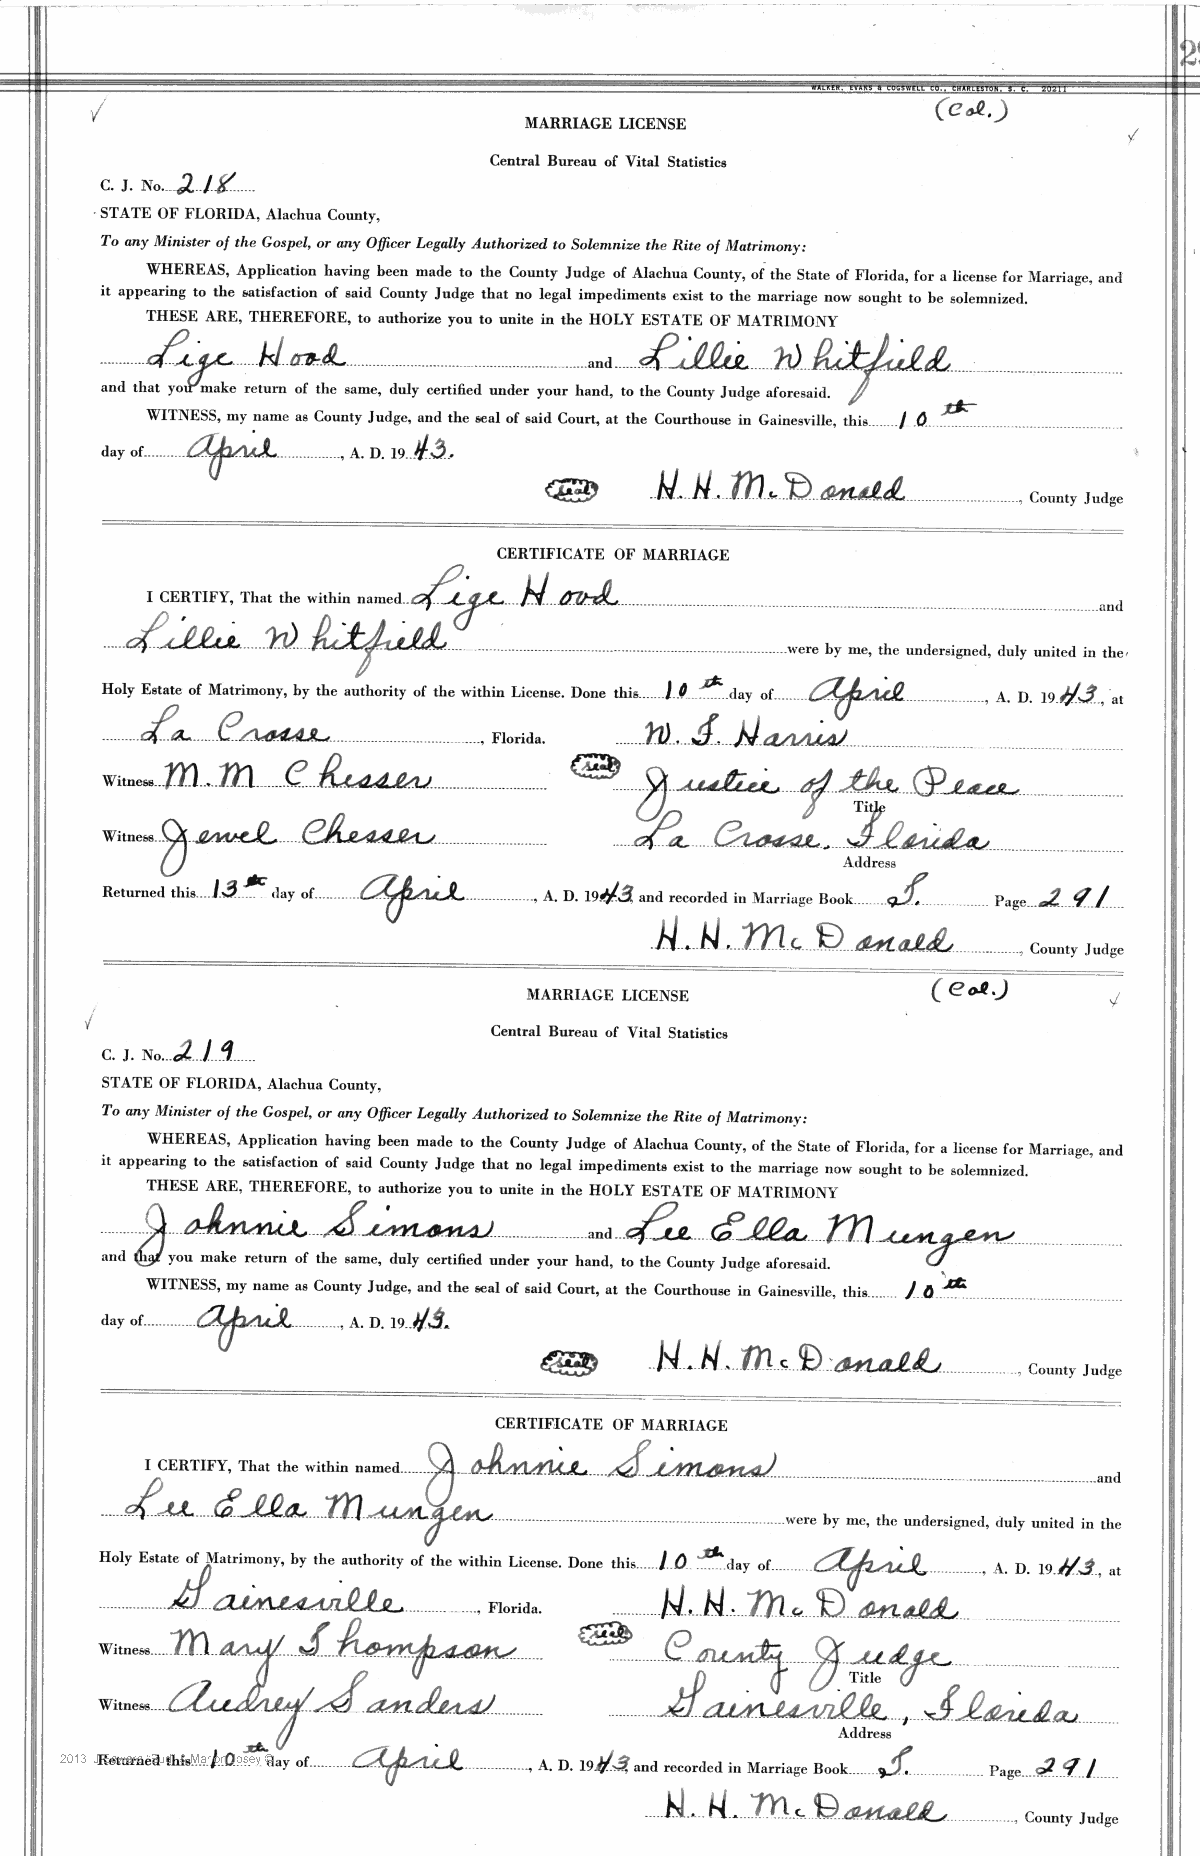 WALKER, EVANS & COGSWELL CO., CHARLESTON, S. C. 20211
(Col.)
MARRIAGE LICENSE
Central Bureau of Vital Statistics
C. J. No. 218
STATE OF FLORIDA, Alachua County,
To any Minister of the Gospel, or any Officer Legally Authorized to Solemnize the Rite of Matrimony:
WHEREAS, Application having been made to the County Judge of Alachua County, of the State of Florida, for a license for Marriage, and
it appearing to the satisfaction of said County Judge that no legal impediments exist to the marriage now sought to be solemnized.
THESE ARE, THEREFORE, to authorize you to unite in the HOLY ESTATE OF MATRIMONY
Lige Hood and Lillie Whitfield
and that you make return of the same, duly certified under your hand, to the County Judge aforesaid.
WITNESS, my name as County Judge, and the seal of said Court, at the Courthouse in Gainesville, this 10th
day of April, A. D. 1943.
seal H. H. McDonald, County Judge
CERTIFICATE OF MARRIAGE
I CERTIFY, That the within named Lige Hood and
Lillie Whitfield were by me, the undersigned, duly united in the
Holy Estate of Matrimony, by the authority of the within License. Done this 10th day of April, A. D. 1943, at
La Crosse, Florida. W. F. Harris
Witness M. M Chesser seal Justice of the Peace
Title
Witness Jewel Chesser La Crosse, Florida
Address
Returned this 13th day of April, A. D. 1943 and recorded in Marriage Book S. Page 291
H. H. McDonald, County Judge
(Col.)
MARRIAGE LICENSE
Central Bureau of Vital Statistics
C. J. No. 219
STATE OF FLORIDA, Alachua County,
To any Minister of the Gospel, or any Officer Legally Authorized to Solemnize the Rite of Matrimony:
WHEREAS, Application having been made to the County Judge of Alachua County, of the State of Florida, for a license for Marriage, and
it appearing to the satisfaction of said County Judge that no legal impediments exist to the marriage now sought to be solemnized.
THESE ARE, THEREFORE, to authorize you to unite in the HOLY ESTATE OF MATRIMONY
Johnnie Simons and Lee Ella Mungen
and that you make return of the same, duly certified under your hand, to the County Judge aforesaid.
WITNESS, my name as County Judge, and the seal of said Court, at the Courthouse in Gainesville, this 10th
day of April, A. D. 1943.
seal H. H. McDonald, County Judge
CERTIFICATE OF MARRIAGE
I CERTIFY, That the within named Johnnie Simons and
Lee Ella Mungen were by me, the undersigned, duly united in the
Holy Estate of Matrimony, by the authority of the within License. Done this 10th day of April, A. D. 1943, at
Gainesville, Florida. H. H. McDonald
Witness Mary Thompson seal County Judge
Title
Witness Audrey Sanders Gainesville, Florida
Address
Returned this 10th day of April, A. D. 1943 and recorded in Marriage Book S. Page 291
2013
H. H. McDonald, County Judge